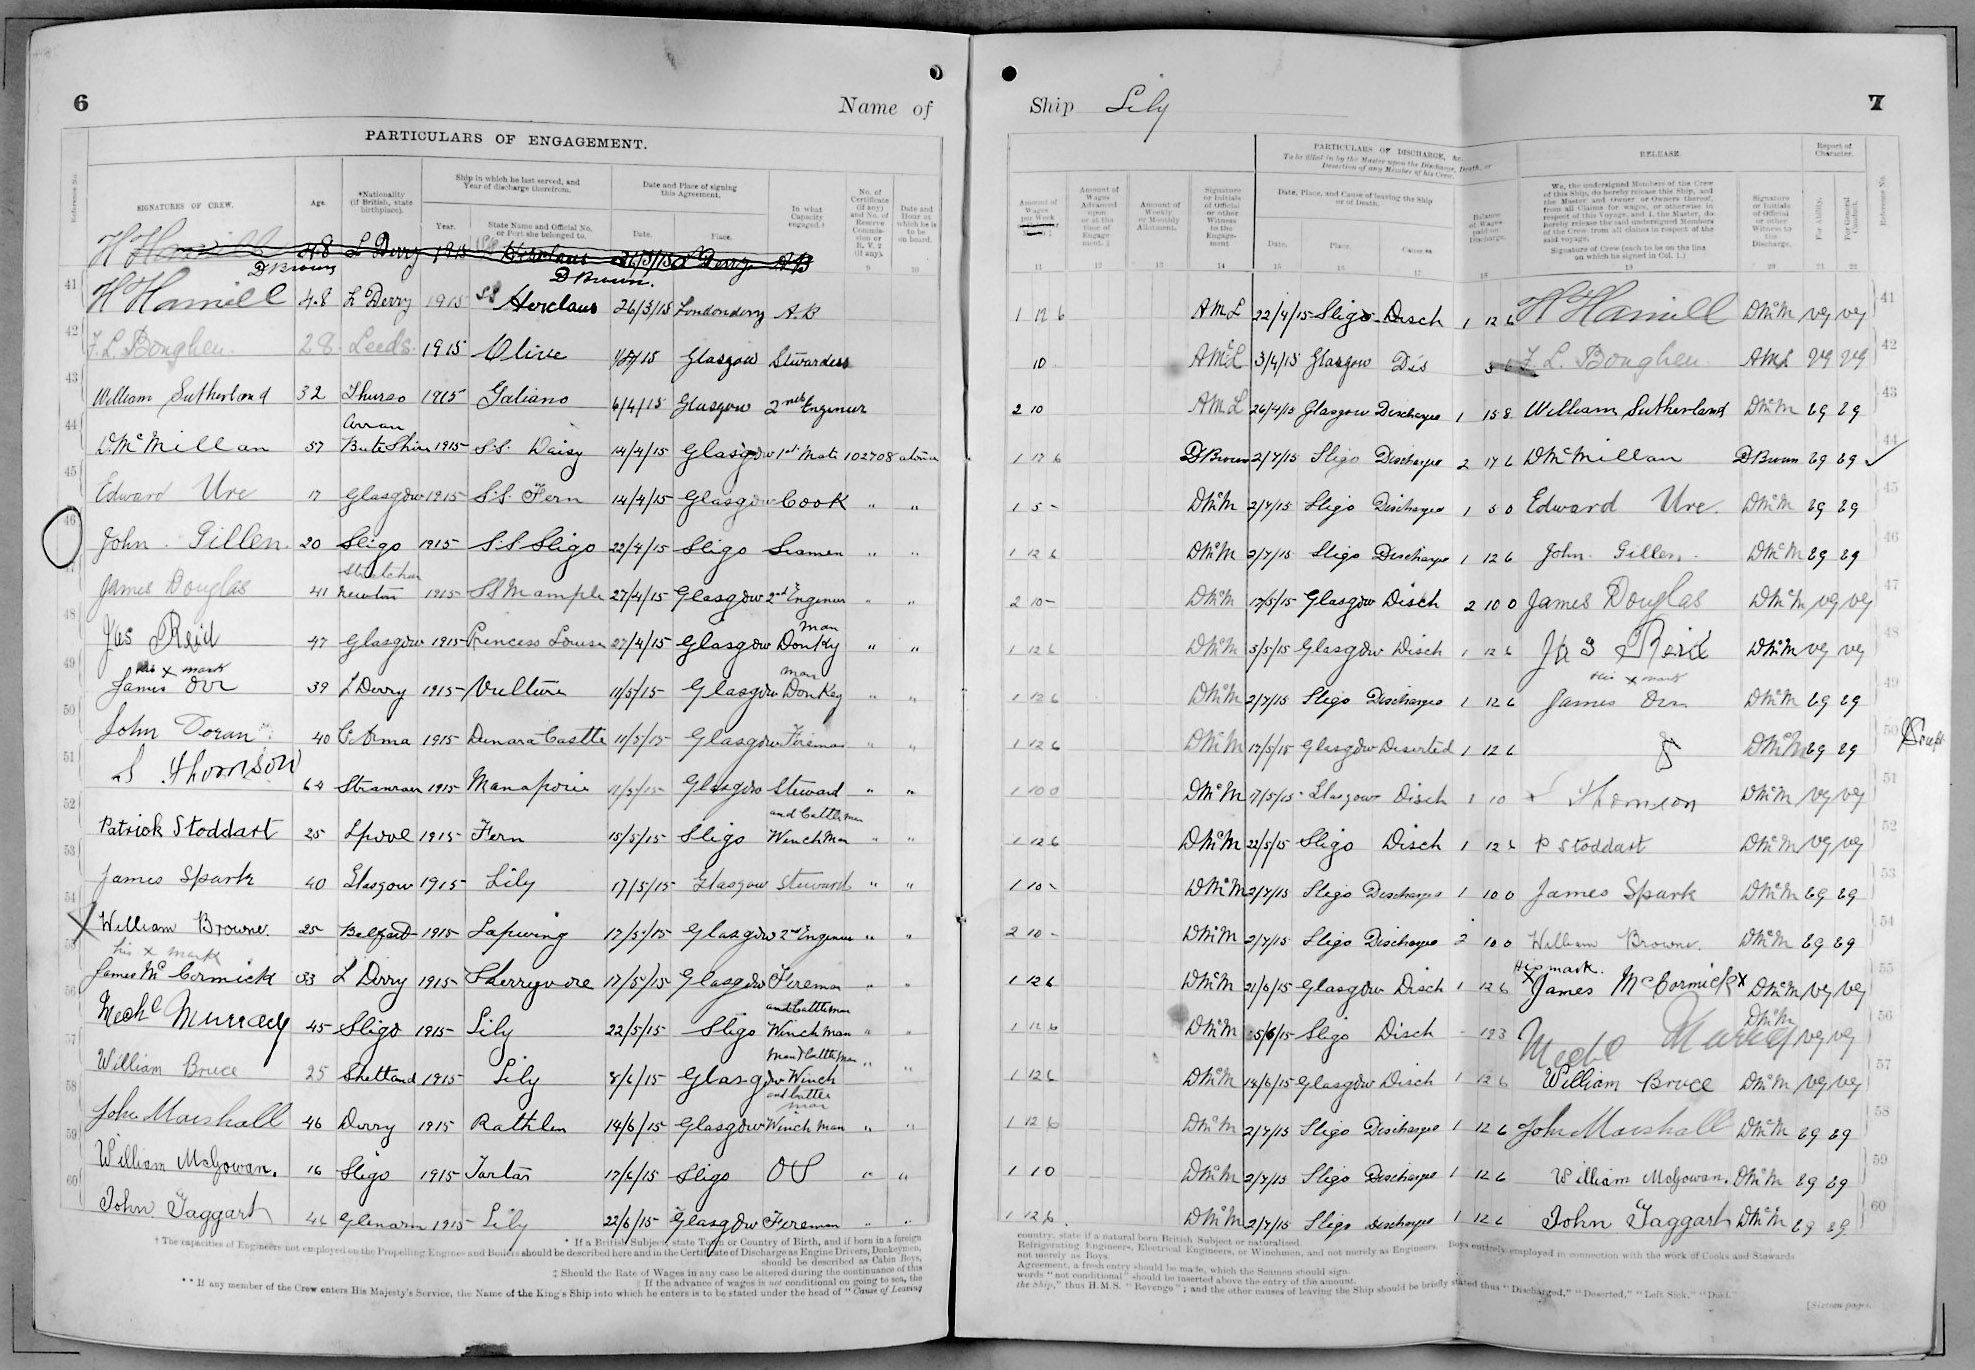 6
Name of
PARTICULARS OF ENGAGEMENT.
Reference No.
SIGNATURES OF CREW.
Age.
*Nationality (if British, state birthplace).
Ship in which he last served, and Year of discharge therefrom.
Year.
State Name and Official No. or Port she belonged to.
Date and Place of signing this Agreement.
Date.
Place.
In what Capacity engaged.†
No. of Certificate (if any) and No. of Reserve Commission or R.V.2 (if any).
Date and Hour at which he is to be on board.
9 10
H Hamill 48 L Derry 1915 SS Herclaus 26/3/15 L Derry AB
D Brown D Brown.
41 H Hamill 48 L'Derry 1915 SS Herclaus 26/3/15 Londonderry A.B
42 F. L. Bonghen. 28 Leeds 1915 Olive Glasgow Stewardess
43 William Sutherland 32 Thurso 1915 Galiano 6/4/15 Glasgow 2nd Engineer
44 D. McMillan 57 Arran Bute Shire 1915 S.S. Daisy 14/4/15 Glasgow 1st Mate 102708 at once
45 Edward Ure 17 Glasgow 1915 S.S. Fern 14/4/15 Glasgow Cook " "
46 John Gillen. 20 Sligo 1915 S.S. Sligo 22/4/15 Sligo Seaman " "
47 James Douglas 41 newton 1915 SS 27/4/15 Glasgow 2nd Engineer " "
48 Jas Reid 47 Glasgow 1915 Princess Louise 27/4/15 Glasgow Donky man " "
49 James Orr his x mark 39 L Derry 1915 Vulture 11/5/15 Glasgow Donkey man " "
50 John Doran 40 1915 Dunara Castle 11/5/15 Glasgow Fireman " "
51 S Thomson 64 Stranraer 1915 11/5/15 Glasgow Steward " "
52 Patrick Stoddart 25 Lpool 1915 Fern 15/5/15 Sligo and Cattleman Winchman " "
53 James Spark 40 Glasgow 1915 Lily 17/5/15 Glasgow Steward " "
54 X William Browne. 25 Belfast 1915 Lapwing 17/5/15 Glasgow 2nd Engineer " "
55 James McCormick his x mark 33 L Derry 1915 Skerryvore 17/5/15 Glasgow Fireman " "
56 Mechl Murray 45 Sligo 1915 Lily 22/5/15 Sligo and Cattleman Winchman " "
57 William Bruce 25 Shetland 1915 Lily 8/6/15 Glasgow Winch man & Cattle man " "
58 John Marshall 46 Derry 1915 Rathlin 14/6/15 Glasgow and Cattle man Winch man " "
59 William McGowan. 16 Sligo 1915 Tartar 17/6/15 Sligo OS " "
60 John Taggart 46 Glenarm 1915 Lily 22/6/15 Glasgow Fireman " "
* If a British Subject, state Town or Country of Birth, and if born in a foreign
† The capacities of Engineers not employed on the Propelling Engines and Boilers should be described here and in the Certificate of Discharge as Engine Drivers, Donkeymen,
should be described as Cabin Boys,
‡ Should the Rate of Wages in any case be altered during the continuance of this
If the advance of wages is not conditional on going to sea, the
** If any member of the Crew enters His Majesty's Service, the Name of the King's Ship into which he enters is to be stated under the head of "Cause of Leaving
Ship Lily
7
PARTICULARS OF DISCHARGE, &c.
To be filled in by the Master upon the Discharge, Death, or Desertion of any Member of his Crew.
RELEASE.
Report of Character.
Amount of Wages per Week
Amount of Wages Advanced upon or at the time of Engagement.
Amount of Weekly or Monthly Allotment.
Signature or Initials of Official or other Witness to the Engagement
Date, Place, and Cause of leaving the Ship or of Death.
Date.
Place.
Cause.**
Balance of Wages paid on Discharge.
We, the undersigned Members of the Crew of this Ship, do hereby release this Ship, and the Master and Owner or Owners thereof, from all Claims for wages, or otherwise in respect of this Voyage, and I, the Master, do hereby release the said undersigned Members of the Crew from all claims in respect of the said voyage.
Signature of Crew (each to be on the line on which he signed in Col. 1.)
Signature or Initials of Official or other Witness to the Discharge.
For Ability.
For General Conduct.
Reference No.
11 12 13 14 15 16 17 18 19 20 21 22
1 12 6 AML 22/4/15 Sligo Disch 1 12 6 H Hamill DMcM VG VG 41
10 AMcL 3/4/15 Glasgow Dis F. L. Bonghen. AML VG VG 42
2 10 AML 26/4/15 Glasgow Discharged 1 15 8 William Sutherland DMcM VG VG 43
1 17 6 D Brown 2/7/15 Sligo Discharged 2 17 6 D McMillan D Brown VG VG 44
1 5 - DMcM 2/7/15 Sligo Discharged 1 5 0 Edward Ure. DMcM VG VG 45
1 12 6 DMcM 2/7/15 Sligo Discharged 1 12 6 John Gillen. DMcM VG VG 46
2 10 - DMcM 17/5/15 Glasgow Disch 2 10 0 James Douglas DMcM VG VG 47
1 12 6 DMcM 5/5/15 Glasgow Disch 1 12 6 Jas Reid DMcM VG VG 48
1 12 6 DMcM 2/7/15 Sligo Discharged 1 12 6 James Orr his x mark DMcM VG VG 49
1 12 6 DMcM 17/5/15 Glasgow Deserted 1 12 6 DMcM VG VG 50
1 10 0 DMcM 17/5/15 Glasgow Disch 1 10 Thomson DMcM VG VG 51
1 12 6 DMcM 22/5/15 Sligo Disch 1 12 6 P Stoddart DMcM VG VG 52
1 10 - DMcM 2/7/15 Sligo Discharged 1 10 0 James Spark DMcM VG VG 53
2 10 - DMcM 2/7/15 Sligo Discharged 2 10 0 William Browne. DMcM VG VG 54
1 12 6 DMcM 21/6/15 Glasgow Disch 1 12 6 His mark. x James McCormick x DMcM VG VG 55
1 12 6 DMcM 5/6/15 Sligo Disch - 12 3 Mechl Murray DMcM VG VG 56
1 12 6 DMcM 14/6/15 Glasgow Disch 1 12 6 William Bruce DMcM VG VG 57
1 12 6 DMcM 2/7/15 Sligo Discharged 1 12 6 John Marshall DMcM VG VG 58
1 10 DMcM 2/7/15 Sligo Discharged 1 12 6 William McGowan. DMcM VG VG 59
1 12 6 DMcM 2/7/15 Sligo Discharged 1 12 6 John Taggart DMcM VG VG 60
country, state if a natural born British Subject or naturalized.
Refrigerating Engineers, Electrical Engineers, or Winchmen, and not merely as Engineers. Boys entirely employed in connection with the work of Cooks and Stewards
not merely as Boys.
Agreement, a fresh entry should be made, which the Seamen should sign.
words "not conditional" should be inserted above the entry of the amount.
the Ship," thus H.M.S. "Revenge"; and the other causes of leaving the Ship should be briefly stated thus "Discharged," "Deserted," "Left Sick," "Died."
[Sixteen pages.